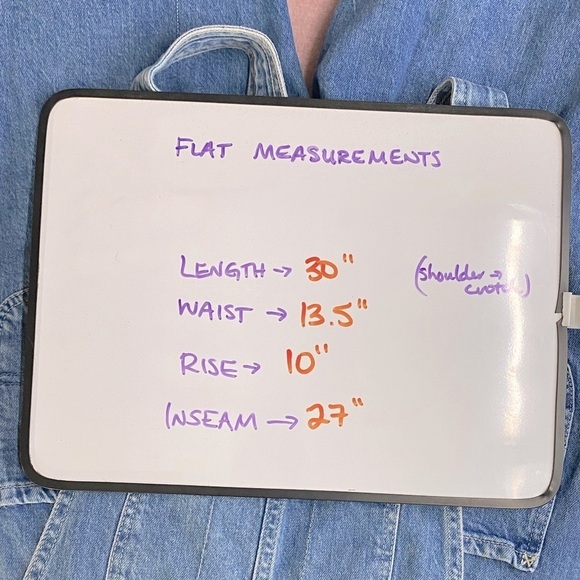 FLAT MEASUREMENTS
LENGTH → 30" (shoulder →
crotch)
WAIST → 13.5"
RISE → 10"
INSEAM → 27"